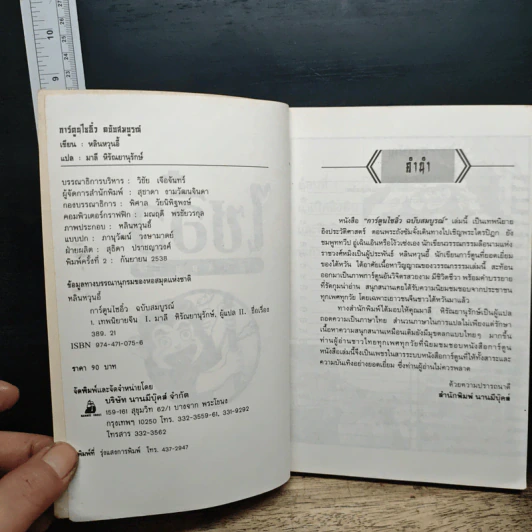 การ์ตูนไซอิ๋ว ฉบับสมบูรณ์
เขียน : หลินหวุนอี้
แปล : มาลี หิรัณยานุรักษ์
บรรณาธิการบริหาร : วิชัย เจือจันทร์
ผู้จัดการสำนักพิมพ์ : สุชาดา งามวัฒนจินดา
กองบรรณาธิการ : พิศาล วัยนิพิฐพงษ์
คอมพิวเตอร์กราฟฟิก : มณฤดี พรชัยวรกุล
ภาพประกอบ : หลินหวุนอี้
แบบปก : ภานุวัฒน์ วงษามาตย์
ฝ่ายผลิต : สุธิดา ปราชญาวงศ์
พิมพ์ครั้งที่ 2 : กันยายน 2538
ข้อมูลทางบรรณานุกรมของหอสมุดแห่งชาติ
หลินหวุนอี้
การ์ตูนไซอิ๋ว ฉบับสมบูรณ์
1. เทพนิยายจีน I. มาลี หิรัณยานุรักษ์, ผู้แปล II. ชื่อเรื่อง
389. 21
ISBN 974-471-075-6
ราคา 90 บาท
จัดพิมพ์และจัดจำหน่ายโดย
บริษัท นานมีบุ๊คส์ จำกัด
159-161 สุขุมวิท 62/1 บางจาก พระโขนง
กรุงเทพฯ 10250 โทร. 332-3559-61, 331-9292
โทรสาร 332-3562
พิมพ์ที่ รุ่งแสงการพิมพ์ โทร. 437-2947
คำนำ
หนังสือ "การ์ตูนไซอิ๋ว ฉบับสมบูรณ์" เล่มนี้ เป็นเทพนิยาย
อิงประวัติศาสตร์ ตอนพระถังซัมจั๋งเดินทางไปเชิญพระไตรปิฎก ยัง
ชมพูทวีป อู๋เฉินเอินหรือโง้วเซ่งเอง นักเขียนวรรณกรรมลือนามแห่ง
ราชวงศ์หมิงเป็นผู้ประพันธ์ หลินหวุนอี้ นักเขียนการ์ตูนที่ยอดเยี่ยม
ของไต้หวัน ได้อาศัยเนื้อหาวิญญาณของวรรณกรรมเล่มนี้ สะท้อน
ออกมาเป็นภาพการ์ตูนอันวิจิตรสวยงาม มีชีวิตชีวา พร้อมคำบรรยาย
ที่รัดกุมน่าอ่าน สนุกสนานเคยได้รับความนิยมชมชอบจากประชาชน
ทุกเพศทุกวัย โดยเฉพาะเยาวชนจีนชาวไต้หวันมาแล้ว
ทางสำนักพิมพ์ได้มอบให้คุณมาลี หิรัณยานุรักษ์เป็นผู้แปล
ถอดความเป็นภาษาไทย สำนวนภาษาในการแปลไม่เพียงแต่รักษา
เนื้อหาความสนุกสนานเหมือนเดิมยังมีมุขตลกแบบไทยๆ มากขึ้น
ท่านผู้อ่านชาวไทยทุกเพศทุกวัยที่นิยมชมชอบหนังสือการ์ตูน
หนังสือเล่มนี้จึงเป็นเพชรในสาระบบหนังสือการ์ตูนที่ให้ทั้งสาระและ
ความบันเทิงอย่างยอดเยี่ยม ซึ่งท่านผู้อ่านไม่ควรพลาด
ด้วยความปรารถนาดี
สำนักพิมพ์ นานมีบุ๊คส์